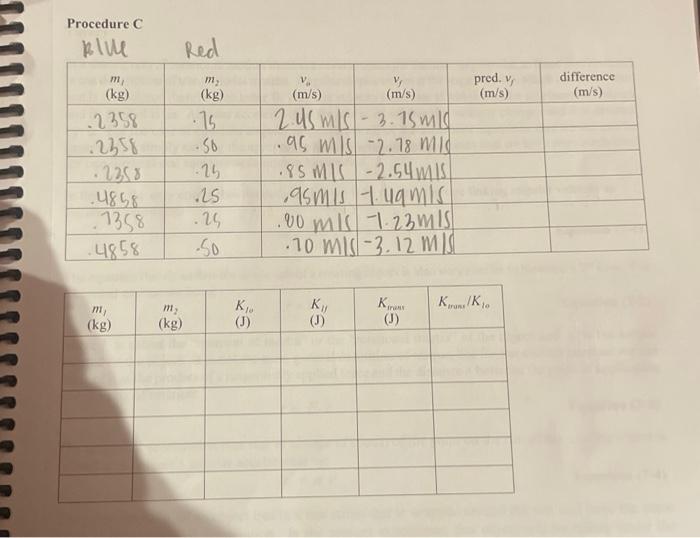 Procedure C
Blue Red
m₁ (kg) m₂ (kg) vₒ (m/s) v_f (m/s) pred. v_f (m/s) difference (m/s)
.2358 .75 2.45 m/s - 3.75 m/s
.2358 .50 .95 m/s -2.78 m/s
.2358 .25 .85 m/s -2.54 m/s
.4858 .25 .95 m/s -1.49 m/s
.7358 .25 .80 m/s -1.23 m/s
.4858 .50 .70 m/s -3.12 m/s
m₁ (kg) m₂ (kg) K₁ₒ (J) K₁f (J) K_trans (J) K_trans/K₁ₒ